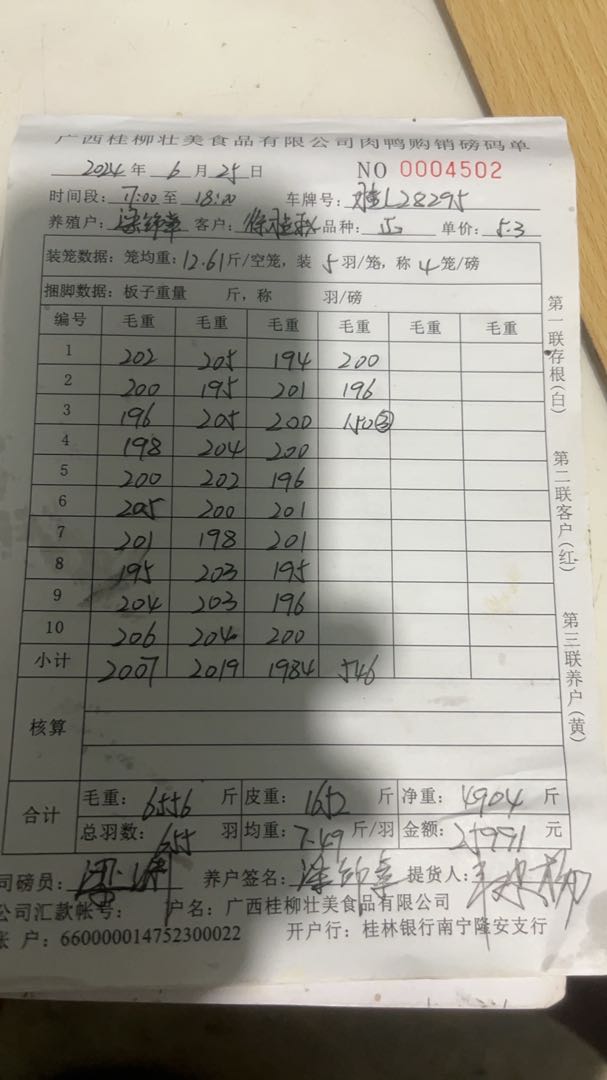 广西桂柳壮美食品有限公司肉鸭购销磅码单
2024 年 6 月 25 日 NO 0004502
时间段: 17:00 至 18:00 车牌号: L28295
养殖户: 客户: 品种: 单价: 5.3
装笼数据: 笼均重: 12.61 斤/空笼, 装 5 羽/笼, 称 4 笼/磅
捆脚数据: 板子重量 斤, 称 羽/磅
编号 毛重 毛重 毛重 毛重 毛重 毛重
1 202 205 194 200
2 200 195 201 196
3 196 205 200 150③
4 198 204 200
5 200 202 196
6 205 200 201
7 201 198 201
8 195 203 195
9 204 203 196
10 206 204 200
小计 2007 2019 1984 546
核算
合计 毛重: 6556 斤 皮重: 1652 斤 净重: 4904 斤
总羽数: 655 羽 均重: 7.49 斤/羽 金额: 25991 元
司磅员: 养户签名: 提货人:
公司汇款帐号: 户名: 广西桂柳壮美食品有限公司
账 户: 660000014752300022 开户行: 桂林银行南宁隆安支行
第一联存根(白)
第二联客户(红)
第三联养户(黄)